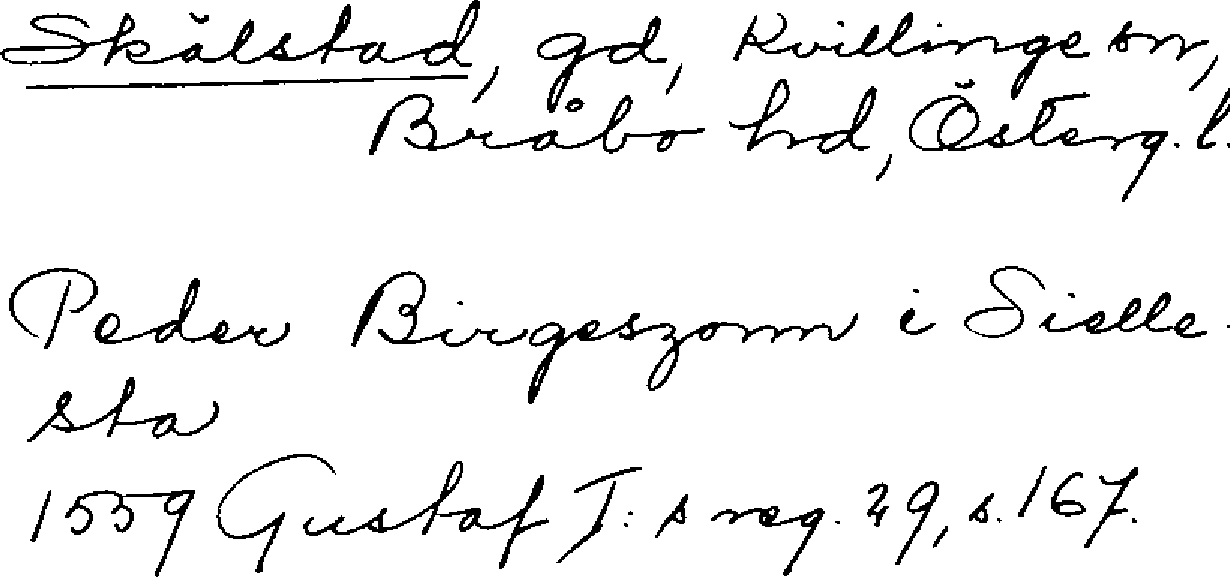 Skålstad, gd, Kvillinge sn,
Bråbo hd, Österg. l.
Peder Birgeszonn i Sielle-
sta
1559 Gustaf I:s reg. 29, s. 167.